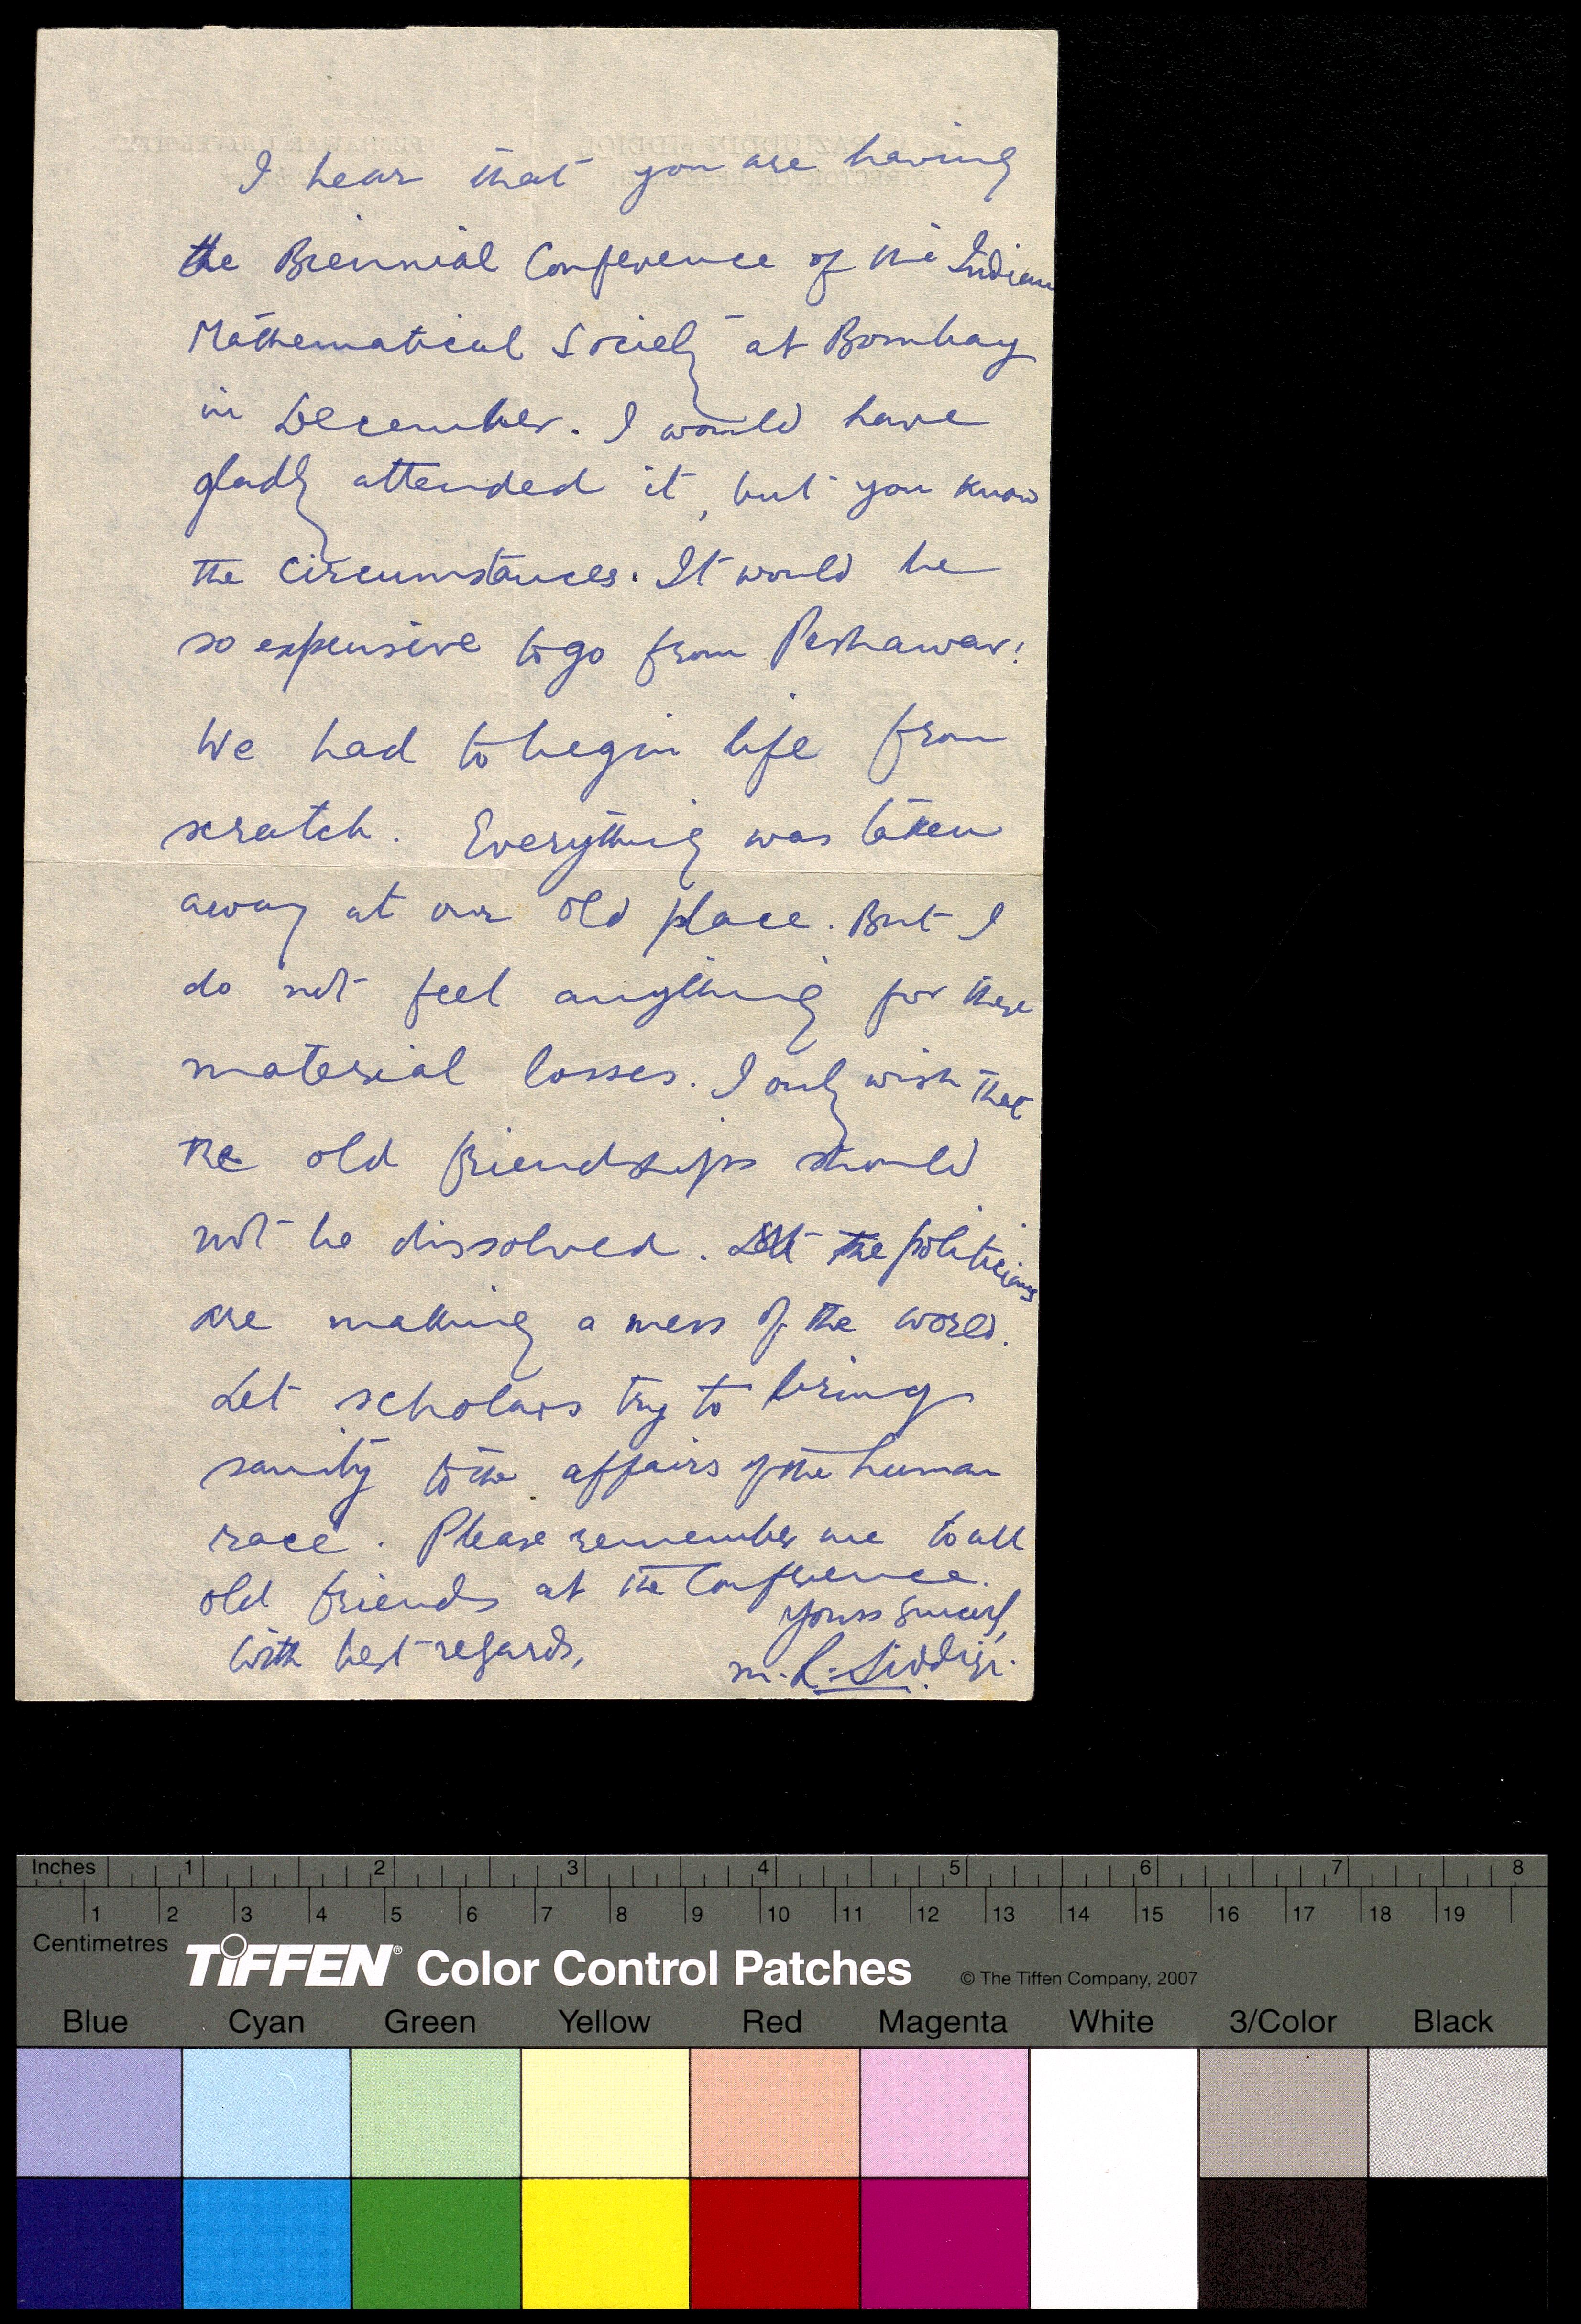 I hear that you are having
the Biennial Conference of the Indian
Mathematical Society at Bombay
in December. I would have
gladly attended it, but you know
the circumstances. It would be
so expensive to go from Peshawar!
We had to begin life from
scratch. Everything was taken
away at our old place. But I
do not feel anything for these
material losses. I only wish that
the old friendships should
not be dissolved. the politicians
are making a mess of the world.
Let scholars try to bring
sanity to the affairs of the human
race. Please remember me to all
old friends at the Conference.
Yours sincerely,
With best regards,
M. R. Siddiqi.
Inches 1 2 3 4 5 6 7 8
1 2 3 4 5 6 7 8 9 10 11 12 13 14 15 16 17 18 19
Centimetres
TIFFEN® Color Control Patches © The Tiffen Company, 2007
Blue Cyan Green Yellow Red Magenta White 3/Color Black